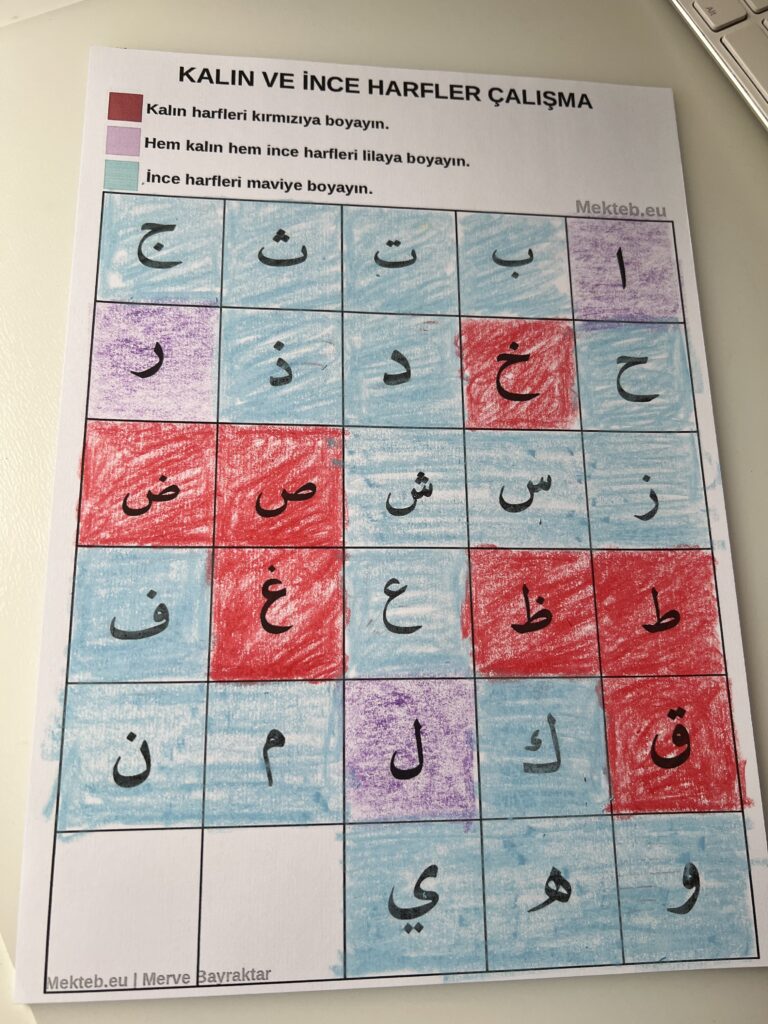 Alt
KALIN VE İNCE HARFLER ÇALIŞMA
Kalın harfleri kırmızıya boyayın.
Hem kalın hem ince harfleri lilaya boyayın.
İnce harfleri maviye boyayın.
Mekteb.eu
ا ب ت ث ج
ح خ د ذ ر
ز س ش ص ض
ط ظ ع غ ف
ق ك ل م ن
و ه ي
Mekteb.eu | Merve Bayraktar